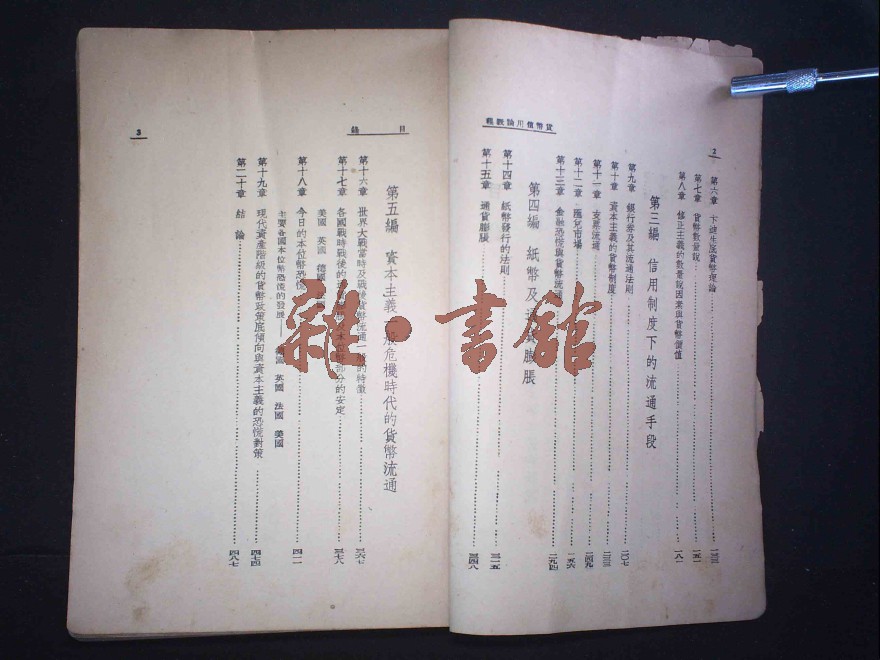 貨幣信用論教程
2
第六章
貨幣理論
一三三
第七章 貨幣數量說
一五一
第八章 修正主義的數量說因素與貨幣價值
一八一
第三編 信用制度下的流通手段
第九章 銀行券及其流通法則
二〇七
第十章 資本主義的貨幣制度
二三三
第十一章 支票流通
二四九
第十二章 匯兌市場
二五六
第十三章 金融恐慌與貨幣流通
二九四
第四編 紙幣及通貨膨脹
第十四章 紙幣發行的法則
三二五
第十五章 通貨膨脹
三四八
目錄
3
第五編 資本主義一般危機時代的貨幣流通
第十六章 世界大戰當時及戰後貨幣流通一般的特徵
三六七
第十七章 各國戰時戰後的
本位幣部分的安定
三七八
美國 英國 德國
第十八章 今日的本位幣恐慌
四一一
主要各國本位幣恐慌的發展——
英國 法國 美國
第十九章 現代資產階級的貨幣政策底傾向與資本主義的恐慌對策
四七四
第二十章 結論
四八七
雜·書館